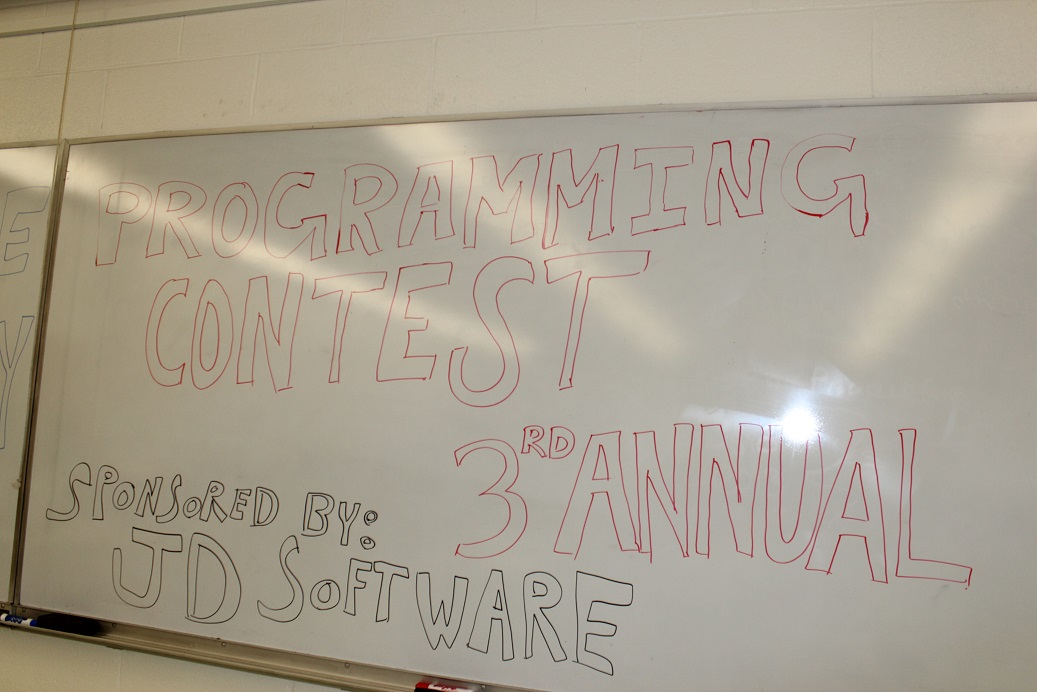 PROGRAMMING
CONTEST
3RD ANNUAL
SPONSORED BY:
JD SOFTWARE
E
Y